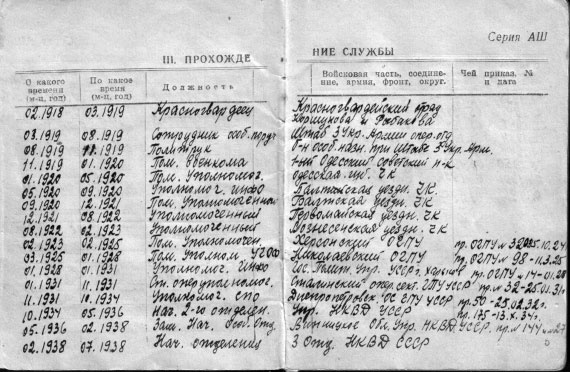 Серия АШ
III. ПРОХОЖДЕНИЕ СЛУЖБЫ
О какого времени (м-ц, год) По какое время (м-ц, год) Должность Войсковая часть, соединение, армия, фронт, округ. Чей приказ, № и дата
02.1918 03.1919 Красногвардеец Красногвардейский отряд
Коршунова и Рыбакова
03.1919 08.1919 Сотрудник особ. поруч. Штаб 3 Укр. Армии опер. отд
08.1919 11.1919 Политрук б-н особ. назн. при Штабе 3 Укр. Арм.
11.1919 01.1920 Пом. Военкома 1-ый Одесский советский п-к
01.1920 05.1920 Пом. Уполномоч. Одесская губ. ЧК
05.1920 09.1920 Уполномоч. инфо Балтская уездн. ЧК
09.1920 12.1921 Пом. Уполномоченный Балтская уездн. ЧК
12.1921 08.1922 Уполномоченный Первомайская уездн. ЧК
08.1922 02.1923 Уполномоченный Вознесенская уездн. ЧК
02.1923 02.1925 Пом. Уполномочен. Херсонский ОГПУ
03.1925 01.1928 Пом. Уполном. Николаевский ОГПУ пр. ОГПУ № 98 - 11.3.25
01.1928 01.1931 Уполномоч. Инфо УССР г. Харьков пр. ОГПУ № 14-01.
01.1931 11.1931 Ст. оперуполномоч. Сталинский опер. сект. ГПУ УССР пр. 32-25.01.31г
11.1931 10.1934 Уполномоч. СПО Днепропетровск. ОС ГПУ УССР пр. 50-25.02.32г.
10.1934 05.1936 Нач. 2-го отделен. Упр. НКВД УССР пр. 175-13.X.34г.
05.1936 02.1938 Зам. Нач. Особ. Отд. Винницкое Обл. Упр. НКВД УССР, пр. № 144
02.1938 07.1938 Нач. отделения 3 Отд. НКВД СССР